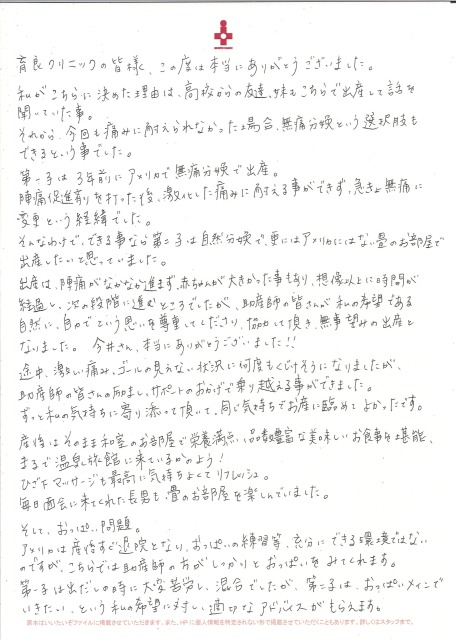 育良クリニックの皆様、この度は本当にありがとうございました。
私がこちらに決めた理由は、高校からの友達、妹もこちらで出産して話を
聞いていた事。
それから、今回も痛みに耐えられなかった場合、無痛分娩という選択肢も
できるという事でした。
第一子は3年前にアメリカで無痛分娩で出産。
陣痛促進剤を打った後、激化した痛みに耐える事ができず、急きょ無痛に
変更という経緯でした。
そんなわけで、できる事なら第二子は自然分娩で、更にはアメリカにはない畳のお部屋で
出産したいと思っていました。
出産は、陣痛がなかなか進まず、赤ちゃんが大きかった事もあり、想像以上に時間が
経過し、次の段階に進むところでしたが、助産師の皆さんが私の希望である
自然に、自力でという思いを尊重してくださり、協力して頂き、無事望みの出産と
なりました。 今井さん、本当にありがとうございました!!
途中、激しい痛み、ゴールの見えない状況に何度もくじけそうになりましたが、
助産師の皆さんの励まし、サポートのおかげで乗り越える事ができました。
ずっと私の気持ちに寄り添って頂いて、同じ気持ちでお産に臨めてよかったです。
産後はそのまま和室のお部屋で栄養満点、品数豊富な美味しいお食事を堪能、
まるで温泉旅館に来ているかのよう!
ひざ下マッサージも最高に気持ちよくてリフレッシュ。
毎日面会に来てくれた長男も、畳のお部屋を楽しんでいました。
そして、おっぱい問題。
アメリカは産後すぐ退院となり、おっぱいの練習等、充分にできる環境ではない
のですが、こちらでは助産師の方がしっかりとおっぱいをみてくれます。
第一子は出だしの時に大変苦労し、混合でしたが、第二子は、おっぱいメインで
いきたい、という私の希望に対し、適切なアドバイスがもらえます。
原本はいいたいぞファイルに掲載させていただきます。また、HPに個人情報を特定されない形で掲載させていただくこともあります。詳しくはスタッフまで。